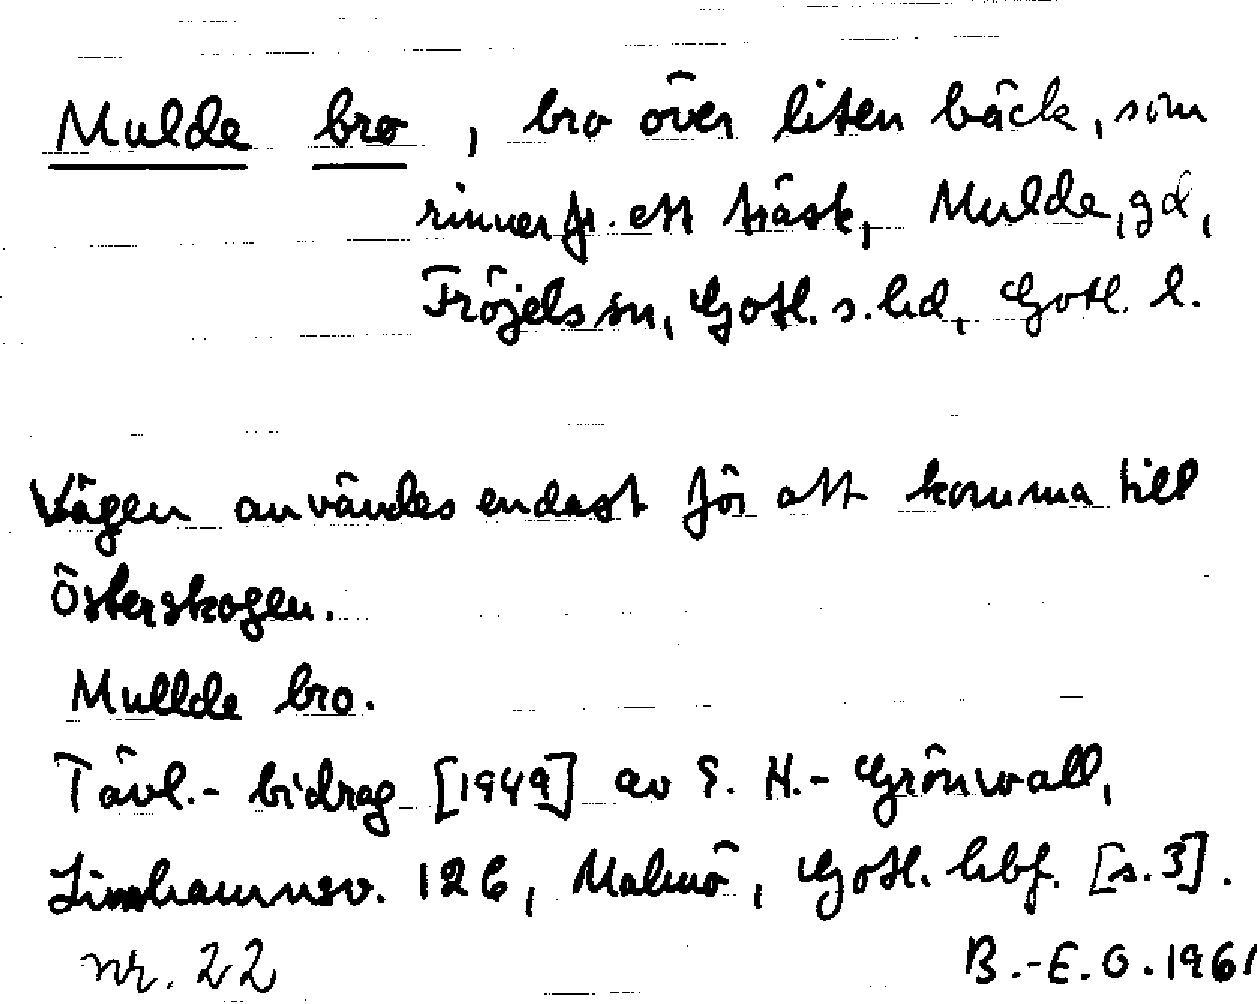 Mulde bro, bro över liten bäck, som
rinner fr. ett träsk, Mulde, gd,
Fröjels sn, Gotl. s. hd, Gotl. l.
Vägen användes endast för att komma till
Österskogen.
Mullde bro.
Tävl.-bidrag [1949] av S. H.-Grönwall,
Limhamnsv. 126, Malmö, Gotl. hbf. [s. 3].
nr. 22
B.-E. O. 1961